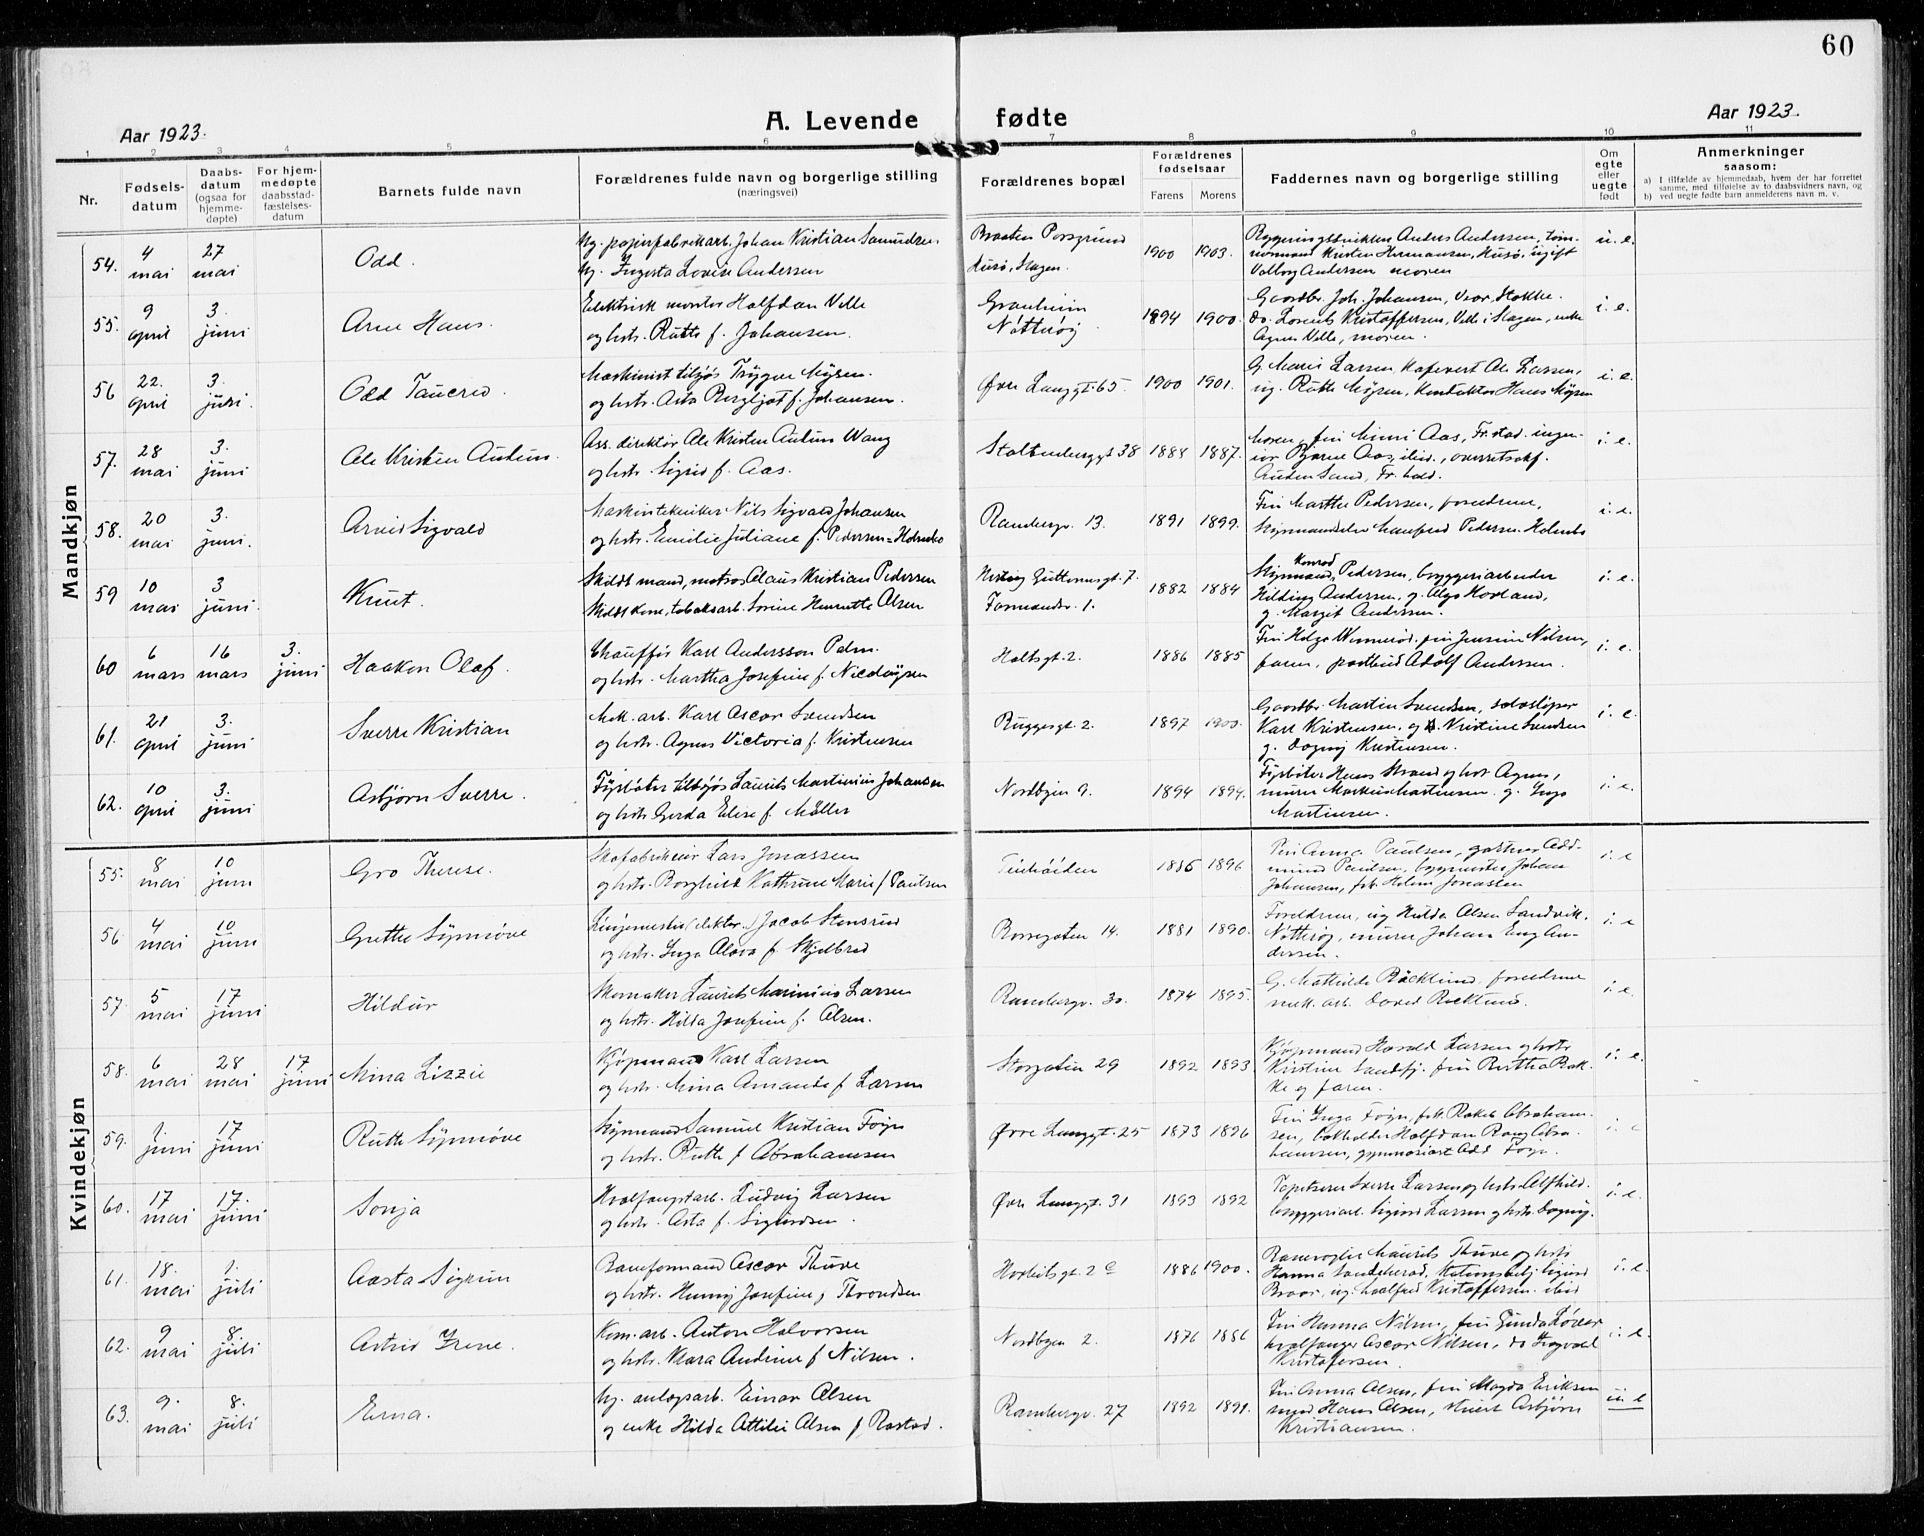 60
Aar 1923.
A. Levende fødte
Aar 1923.
1 2 3 4 5 6 7 8 9 10 11
Nr.
Fødsels-
datum
Daabs-
datum
(ogsaa for
hjemme-
døpte)
For hjem-
medøpte
daabsstad-
fæstelses-
datum
Barnets fulde navn
Forældrenes fulde navn og borgerlige stilling
(næringsvei)
Forældrenes bopæl
Forældrenes
fødselsaar
Farens Morens
Faddernes navn og borgerlige stilling
Om
egte
eller
uegte
født
Anmerkninger
saasom:
a) I tilfælde av hjemmedaab, hvem der har forrettet
samme, med tilføielse av to daabsvidners navn, og
b) ved uegte fødte barn anmelderens navn m. v.
Mandkjøn
54. 4 mai 27 mai Odd.
Ug. papirfabrikarb. Johan Kristian
Ug. Ingesta Lovise Andersen
Braaten Porsgrund
Husø, Slagen.
1900 1903. u. e.
Anders Andersen, tøm-
mermand Kristen Hermansen, Husø, ugift
Valborg Andersen moren
55. 9 april 3. juni Arne Hans.
Elektrisk montør Halfdan Velle
og hstr. Ruth f. Johansen.
Granheim
Nøtterøy
1894 1900. i. e.
Gaardbr. Joh. Johansen, Vear, Stokke.
do. Lorents Kristoffersen, Velle i Slagen, enke
Agnes Velle, moren.
56 22. april 3. juni. Odd Tancred
Maskinist tilsjøs Trygve Møysen.
og hstr. Asta Bergljot f. Johansen.
Øvre Langgt. 65 1900 1901. i. e.
G. Marie Larsen, Kafevert Ole Larsen,
ug. Ruth Møysen, Konduktør Hans Møysen
57. 28 mai 3. juni Ole Kristen Autuns.
Ass. direktør Ole Kristen Wang
og hstr. Sigrid f. Aas.
Stoltenberggt 38 1884 1887. i. e.
Moren, frk Mimi Aas, Fr.stad. ingen-
iør Bjarne Aas, ibid., overretssakf.
Sand, Fr. hald.
58. 20 mai 3. juni. Arvid Sigvald
Maskintekniker Nils Sigvald Johansen
og hstr. Emilie Juliane f. Pedersen=Holmbo
Rambergv. 13. 1891 1899. i. e.
Fru Marthe Pedersen, foreldrene,
Manfred Pedersen Holmbo
59 10 mai 3 juni. Knut.
Skildt mand, matros Claus Kristian Pedersen
Skildt kone, tobaksarb. Sorine Henriette Olsen
Hertug Guttormsgt. 7.
Formandsv. 1.
1882 1884 i. e.
Konrad
Pedersen, bryggeriarbeider
Hilding Andersen, g. Olga Hovland,
g. Margit Andersen.
60 6 mars 16 mars 3. juni Haakon Olaf.
Chauffør Karl Andersson Palm.
og hstr. Martha Josefine f. Nicolaysen
Holtsgt. 2. 1886 1885 i. e.
Fru Helga Wennerød, fru Jensine Nilsen,
faren, postbud Adolf Andersen.
61. 21 april 3. juni Sverre Kristian
Mek. arb. Karl Oscar Svendsen
og hstr. Agnes Victoria f. Kristensen
Buggesgt. 2. 1897 1900. i. e.
Gaardbr. Martin Svendsen,
Karl Kristensen, Kristine Svendsen
g. Dagny Kristensen.
62. 10 april 3. juni Asbjørn Sverre.
Fyrbøter tilsjøs Laurits Martinius Johansen
og hstr. Gerda Elise f. Møller
Nordbyen 9. 1894 1894. i. e.
Fyrbøter Hans Strand og hstr Agnes,
murer Markus Martinsen. g. Inga
Martinsen.
Kvindekjøn
55. 8 mai 10 juni Gro Therese.
Skofabrikeier Lars Jonassen
og hstr. Borghild Kathrine Marie f Paulsen
1886 1896 i. e
Fru Anna Paulsen, gartner Odd-
mund Paulsen, bygmester Johan
Johansen, frk. Helene Jonassen
56. 4 mai 10 juni Grethe Synnøve
Linjemester (elektr.) Jacob Stensrud
og hstr. Inga Olava f. Skjelbred
Borregaten 14. 1881 1890. i. e
Foreldrene, ug Hilda Olsen Sandvik.
Nøtterøy, murer Johan Eng An-
dersen.
57 5 mai 17 juni Hildur
Skomaker Laurits Marinius Larsen
og hstr. Hilda Josefine f. Olsen.
Rambergv. 30. 1874 1895. i. e.
G. Mathilde Bäcklund, foreldrene
mek. arb. David Bäcklund.
58. 6 mai 28 mai 17 juni Mina Lizzie
Kjøpmand Karl Larsen
og hstr. Mina Amanda f Larsen
Storgaten 29 1892 1893 i. e.
Kjøpmand Harald Larsen og hstr
Kristine Sandefj. frk Bertha Bak-
ke og faren.
59. 1. juni 17 juni Ruth Synnøve
Skipsmand Samuel Kristian Føyn
og hstr. Ruth f Abrahamsen
Øvre Langgt. 25 1873 1896 i. e
Fru Inga Føyn, frk. Rakel Abraham-
sen, bokholder Halfdan Abra-
hamsen, gymnasiast Odd Føyn.
60. 17 mai 17. juni Sonja
Hvalfangstarb. Ludvig Larsen
og hstr. Asta f. Sigurdsen.
Øvre Langgt. 31 1893 1892 i. e.
Tapetserer Sverre Larsen og hstr Alfhild.
bryggeriarb. Sigurd Larsen og hstr. Dagny.
61. 18. mai 1. juli Aasta Sigrun
Baneformand Oscar Thuve
og hstr. Henny Josefine f Trondsen
Horbitsgt. 2 c 1886 1900. i. e.
Banevogter Maurits Thuve og hstr
Hanna
62. 9 mai 8. juli Astrid Irene.
Kom. arb. Anton Halvorsen
og hstr. Klara Andrine f Nilsen.
Nordbyen 2. 1876 1886 i. e.
Fru Hanna Nilsen, fru Gunda Løver
hvalfanger Oscar Nilsen, do
Kristofersen.
63. 9. mai 8. juli Erna.
Ug. anlegsarb. Einar Olsen
og enke Hilda Attilie Olsen f. Rastad.
Rambergv. 27 1892 1891. u. e
Fru Anna Olsen, fru Magda Eriksen
Hans Olsen, stuert Asbjørn
Kristiansen.